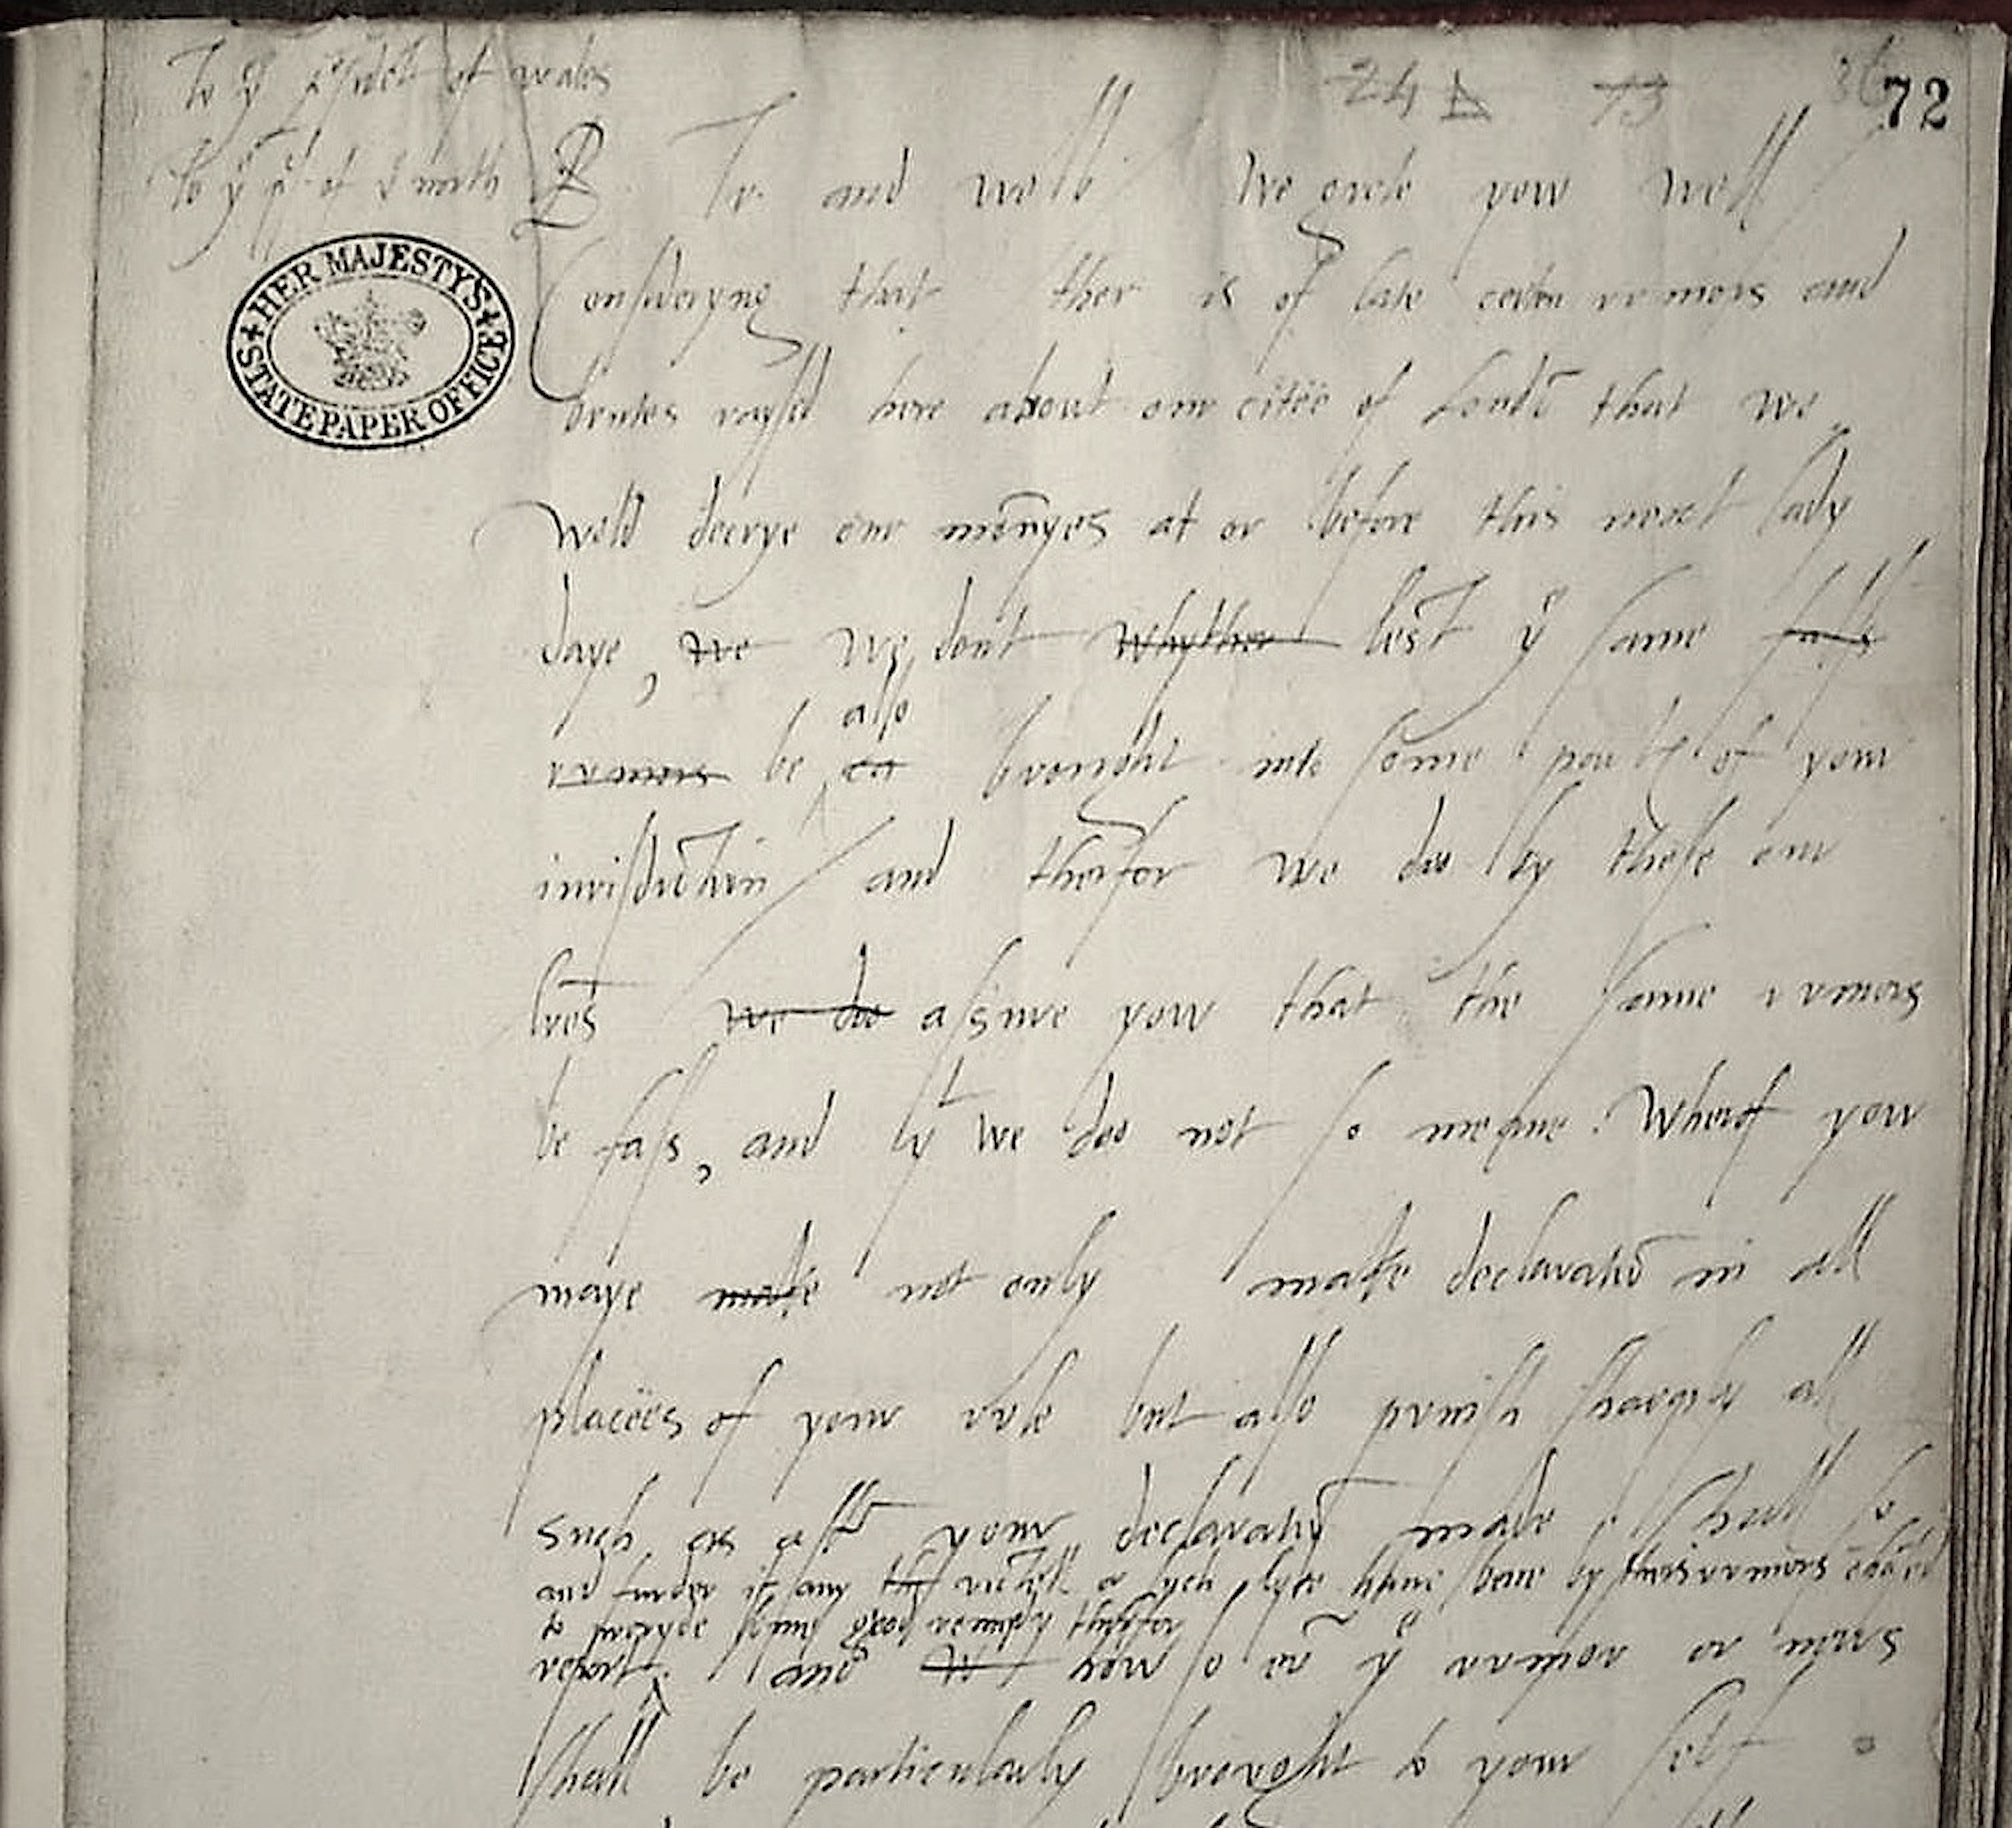 To yͤ pͬsident of wales
to yͤ p. of yͤ north
24 D 13 72
HER MAJESTYS STATE PAPER OFFICE
Tr. and well We grete yow well
Consideryng that ther is of late certen rumors and
brutes raysed here about our citee of Londō that we
wold decrye our mōnyes at or before this next lady
daye, we we dout whyther lest yͤ same fals
rumors be also brought into some part of your
iurisdictiōn and therfor we doo by these our
lr̄es we doo assure yow that the same rumors
be fals, and yͭ we doo not so meane. Wherof yow
maye make not only make declaratiō in all
placees of your rule but also punish sharply all
such as aftr̄ your declaratiō made shall so
and furder if any victell or such lyke have bene by this rumors
to provyde some good remedy therfor
report. and how so evr̄ yͤ rumor or news
shall be particularly brought to your self